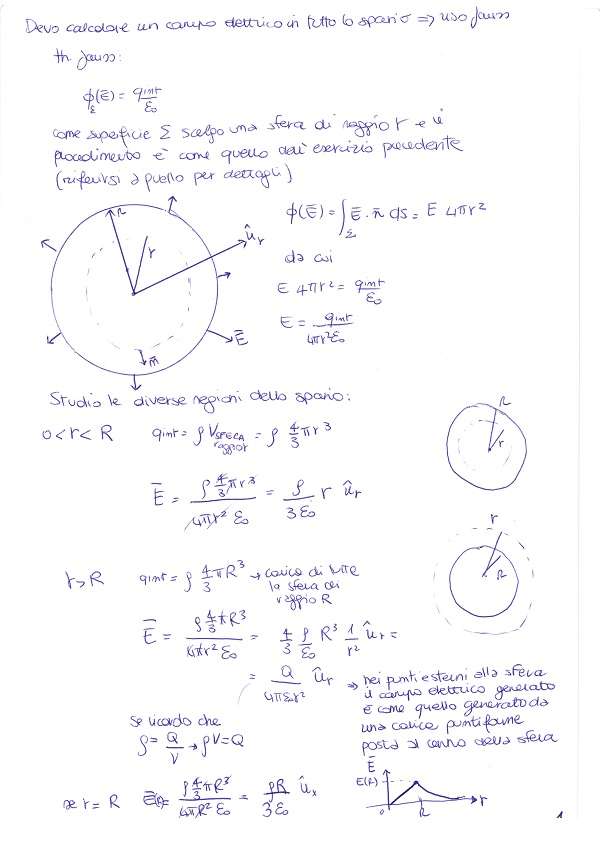 Devo calcolare un campo elettrico in tutto lo spazio ⇒ uso Gauss
th. Gauss:
ϕ_Σ(E̅) = qint/ε₀
come superficie Σ scelgo una sfera di raggio r e il
procedimento è come quello dell'esercizio precedente
(riferirsi a quello per dettagli)
R
r
û_r
E̅
n̅
ϕ(E̅) = ∫_Σ E̅ · n̅ dS = E 4πr²
da cui
E 4πr² = qint/ε₀
E = qint/4πr²ε₀
Studio le diverse regioni dello spazio:
0 < r < R qint = ρ V_SFERA raggio r = ρ 4/3 πr³
R
r
E̅ = ρ 4/3 πr³ / 4πr² ε₀ = ρ/3ε₀ r û_r
r
R
r > R qint = ρ 4/3 πR³ → carica di tutta
la sfera di
raggio R
E̅ = ρ 4/3 πR³ / 4πr² ε₀ = 4/3 ρ/ε₀ R³ 1/r² û_r =
= Q/4πε₀r² û_r
⇒ nei punti esterni alla sfera
il campo elettrico generato
è come quello generato da
una carica puntiforme
posta al centro della sfera
se ricordo che
ρ = Q/V → ρV = Q
se r = R = ρ 4/3 πR³ / 4πR² ε₀ = ρR/3ε₀ û_x
E̅
E(r)
0
R
r
1